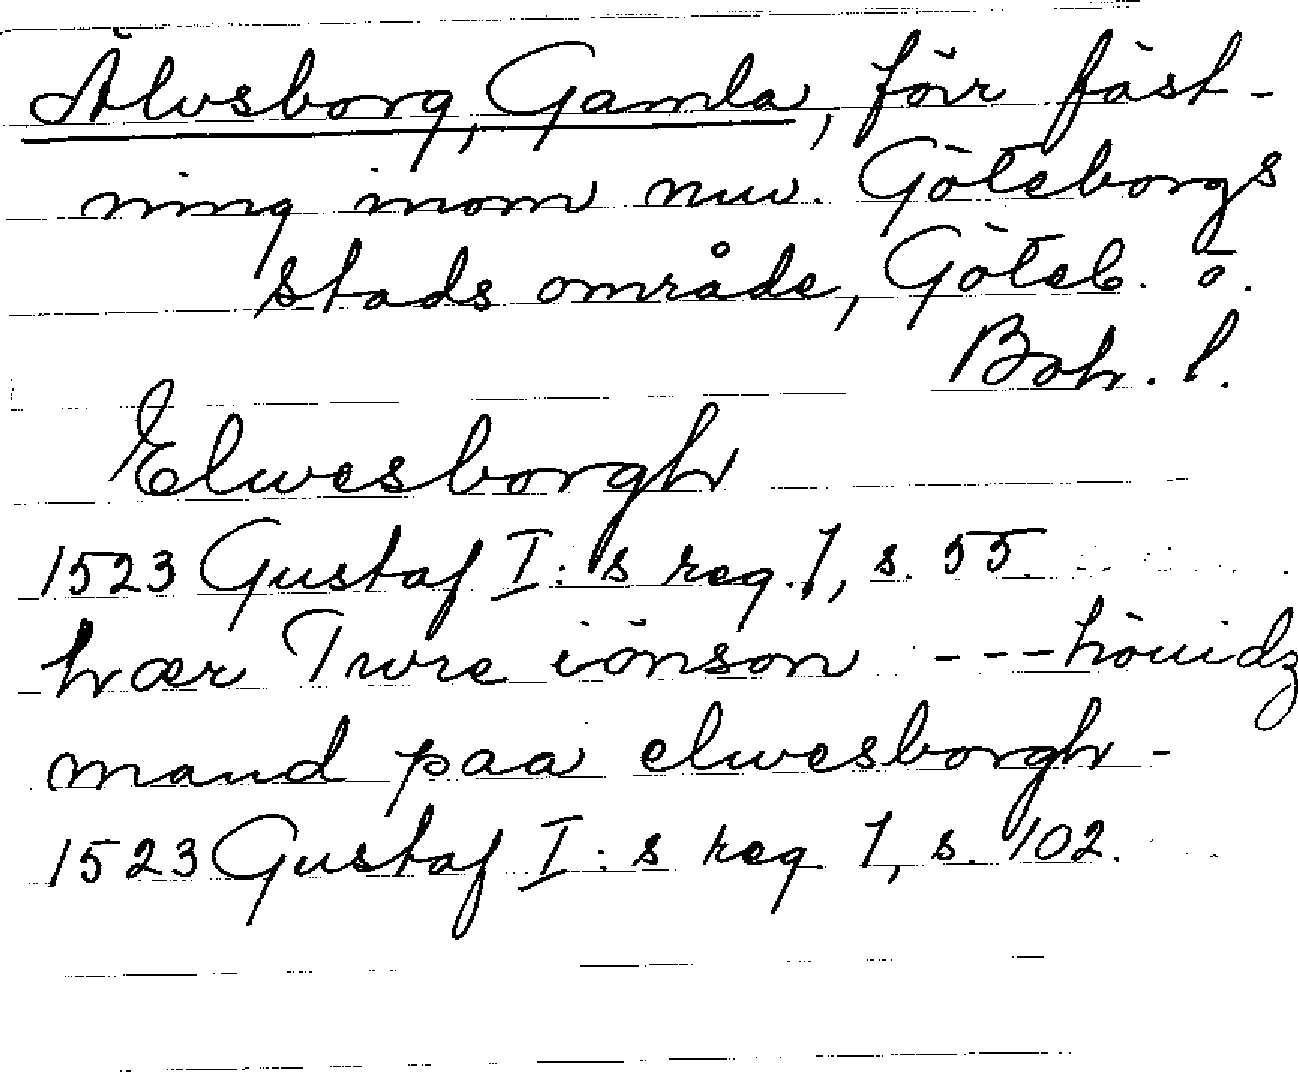 Älvsborg, Gamla, förr fäst-
ning inom nuv. Göteborgs
stads område, Göteb. o.
Boh. l.
Elwesborgh
1523 Gustaf I:s reg. 1, s. 55.
hær Twre iönson --- höuidz
mand paa elwesborgh -
1523 Gustaf I:s reg 1, s. 102.